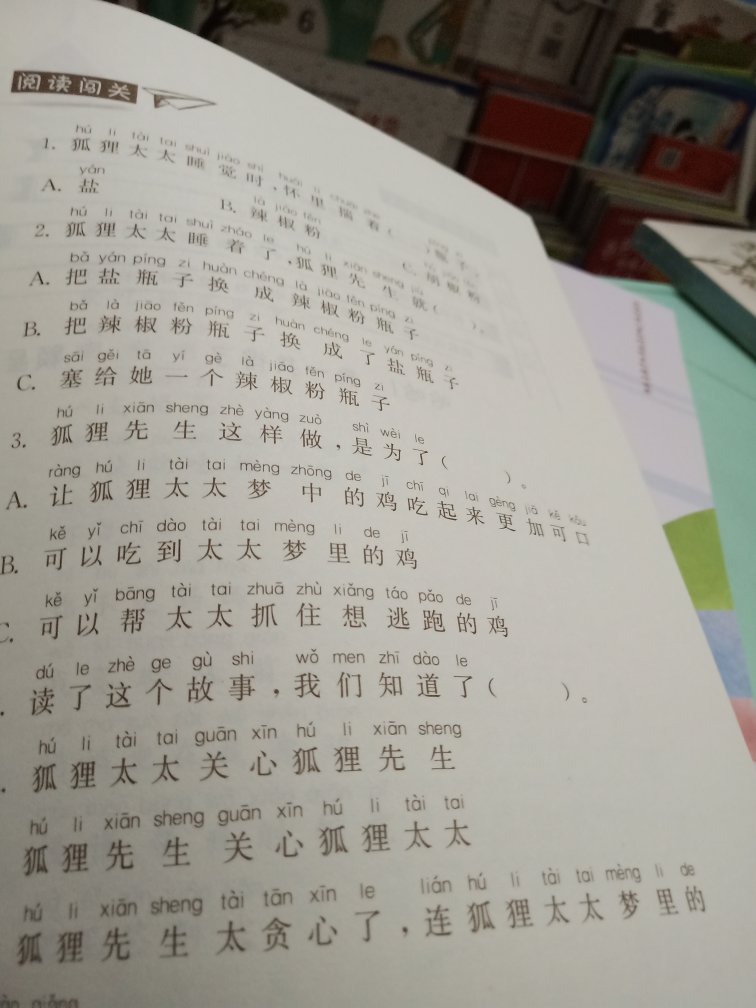 阅读闯关
hú li tài tai shuì jiào shí huái li chuāi zhe
1. 狐狸太太睡觉时，怀里揣着( )瓶子。
yán là jiāo fěn
A. 盐 B. 辣椒粉 C. 胡椒粉
hú li tài tai shuì zháo le hú li xiān sheng jiù
2. 狐狸太太睡着了，狐狸先生就( )。
bǎ yán píng zi huàn chéng là jiāo fěn píng zi
A. 把盐瓶子换成辣椒粉瓶子
bǎ là jiāo fěn píng zi huàn chéng le yán píng zi
B. 把辣椒粉瓶子换成了盐瓶子
sāi gěi tā yí gè là jiāo fěn píng zi
C. 塞给她一个辣椒粉瓶子
hú li xiān sheng zhè yàng zuò shì wèi le
3. 狐狸先生这样做，是为了( )。
ràng hú li tài tai mèng zhōng de jī chī qi lai gèng jiā kě kǒu
A. 让狐狸太太梦中的鸡吃起来更加可口
kě yǐ chī dào tài tai mèng li de jī
B. 可以吃到太太梦里的鸡
kě yǐ bāng tài tai zhuā zhù xiǎng táo pǎo de jī
C. 可以帮太太抓住想逃跑的鸡
dú le zhè ge gù shi wǒ men zhī dào le
读了这个故事，我们知道了( )。
hú li tài tai guān xīn hú li xiān sheng
狐狸太太关心狐狸先生
hú li xiān sheng guān xīn hú li tài tai
狐狸先生关心狐狸太太
hú li xiān sheng tài tān xīn le lián hú li tài tai mèng li de
狐狸先生太贪心了，连狐狸太太梦里的